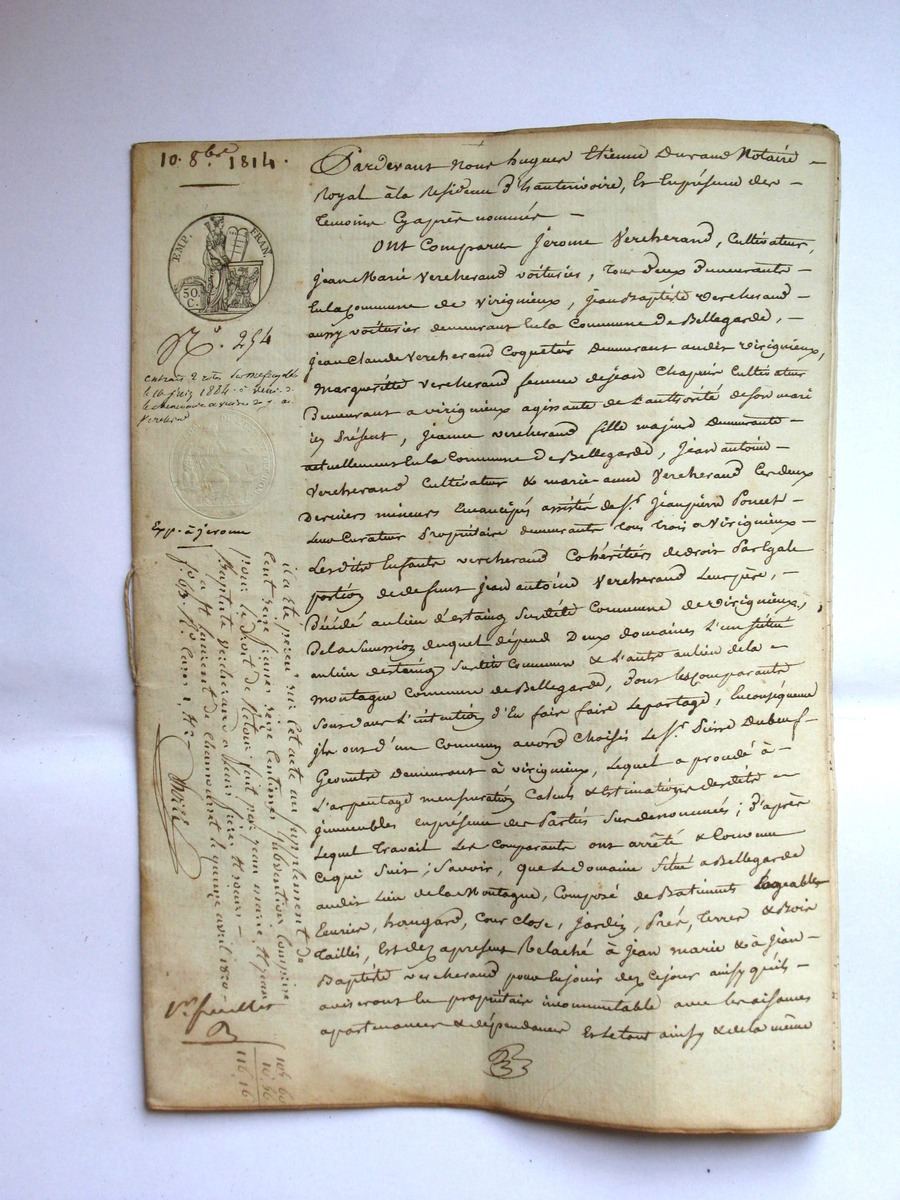 10. 8bre 1814.
EMP. FRAN.
50 C.
N°. 254
le 10 juin 1884
Vercherand
Exp. à jerome
Pardevant Nous hugues Etienne Durand Notaire
Royal à la Residence d'hauterivoire, Et En présence des
temoins Cyaprès nommés
ONT Comparu Jérome Vercherand, Cultivateur,
Jean Marie Vercherand voiturier, tous deux Demeurants
En la Commune de Virignieux, jean Baptiste Vercherand
aussy voiturier demeurant En la Commune de Bellegarde,
Jean Claude Vercherand Coquetier Demeurant audit virignieux,
Margueritte Vercherand femme de jean Chapuis Cultivateur
Demeurant a virignieux agissante de L'authorité de son mari
icy Présent, jeanne vercherand fille majeure demeurante
actuellement En la Commune de Bellegarde, jean antoine
Vercherand Cultivateur & marie anne Vercherand Ces deux
Derniers mineurs Emancipés assistés de Sr. Jean pierre Poncet
Leur Curateur Propriétaire demeurants tous trois a Virignieux
Lesdits Enfants vercherand Cohéritiers de droit Par Egale
portion de defunt jean antoine Vercherand Leur père,
Décédé au lieu d'Estaing Susdite Commune de virignieux,
De la Succession duquel dépend Deux domaines L'un situé
au lieu destaing Susdite Commune & L'autre au lieu de la
montagne Commune de Bellegarde, dont les Comparants
Sont dans L'intention d'En faire faire Le partage, En conséquence
ils ont d'un Commun accord Choisis Le Sr. Pierre Duboeuf
Géomètre Demeurant à virignieux, Lequel a procédé à
L'arpentage mensuration Calculs & Estimations desdits
jmmeubles en présence des Parties Susdenommées; D'après
Lequel travail Les Comparants ont arrêté & Convenu
Ce qui Suit; Savoir, que Le domaine Situé a Bellegarde
audit Lieu de la Montagne, Composé de Batiments Logeables
Ecurier, hangard, Cour Close, Jardin, Prés, Terres & Bois
Taillis, Est dez apresent Relaché à Jean marie & à Jean
Baptiste Vercherand pour En jouir dez Ce jour ainsy qu'ils
aviseront En propriétaire incommutable avec les aisances
apartenances & dépendances Et le tout ainsy & de la même
il a été perçu sur cet acte un supplément de
cent seize francs seize centimes subvention comprise
pour le droit de retour fait par jean marie et jean
Baptiste vercherand a leurs frères et soeurs
a St Laurent de Chamousset le quinze avril 1820